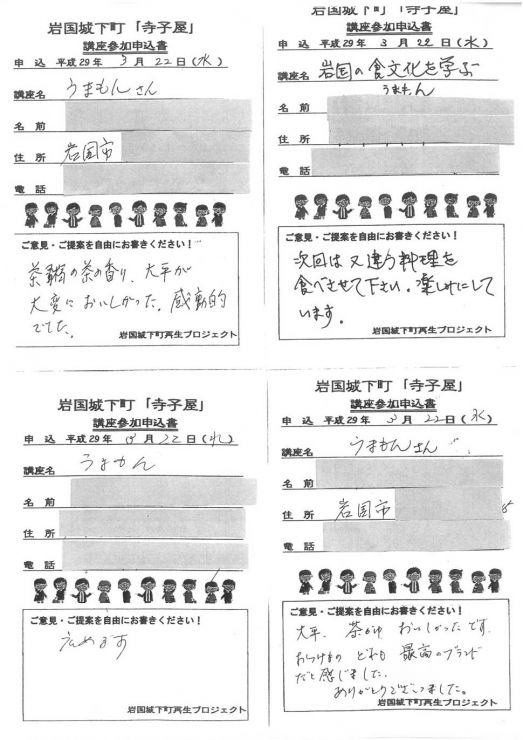 岩国城下町「寺子屋」
講座参加申込書
申 込 平成29年 3 月 22 日(水)
講座名 うまもんさん
名 前
住 所 岩国市
電 話
ご意見・ご提案を自由にお書きください!
茶粥の茶の香り、大平が
大変においしかった。感動的
でした。
岩国城下町再生プロジェクト
岩国城下町「寺子屋」
講座参加申込書
申 込 平成29年 3 月 22 日(水)
講座名 岩国の食文化を学ぶ
うまもん
名 前
住 所
電 話
ご意見・ご提案を自由にお書きください!
次回は又違う料理を
食べさせて下さい。楽しみにして
います。
岩国城下町再生プロジェクト
岩国城下町「寺子屋」
講座参加申込書
申 込 平成29年 月 22 日(水)
講座名 うまもん
名 前
住 所
電 話
ご意見・ご提案を自由にお書きください!
広めます
岩国城下町再生プロジェクト
岩国城下町「寺子屋」
講座参加申込書
申 込 平成29年 3 月 22 日(水)
講座名 うまもんさん
名 前
住 所 岩国市
電 話
ご意見・ご提案を自由にお書きください!
大平、茶がゆ おいしかったです。
おつけもの どれも 最高のブランド
だと感じました。
ありがとうございました。
岩国城下町再生プロジェクト